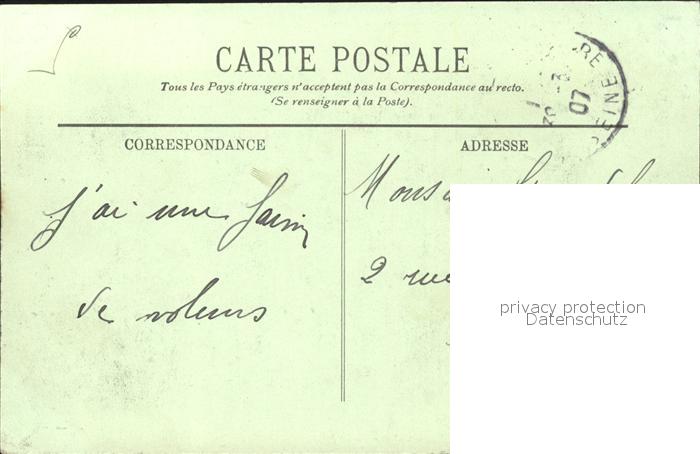 CARTE POSTALE
Tous les Pays étrangers n'acceptent pas la Correspondance au recto.
(Se renseigner à la Poste).
CORRESPONDANCE
ADRESSE
J'ai une faim
de voleurs
2 rue
07
privacy protection
Datenschutz